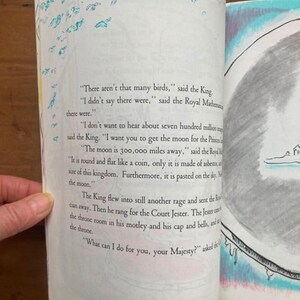 "There aren't that many birds," said the King.
"I didn't say there were," said the Royal
there were."
"I don't want to hear about seven hundred million
said the King. "I want you to get the moon for the
"The moon is 300,000 miles away," said the Royal
"It is round and flat like a coin, only it is made of asbestos,
size of this kingdom. Furthermore, it is pasted on the
the moon."
The King flew into still another rage and sent the Royal
cian away. Then he rang for the Court Jester. The Jester came
the throne room in his motley and his cap and bells, and
the throne.
"What can I do for you, your Majesty?" asked the